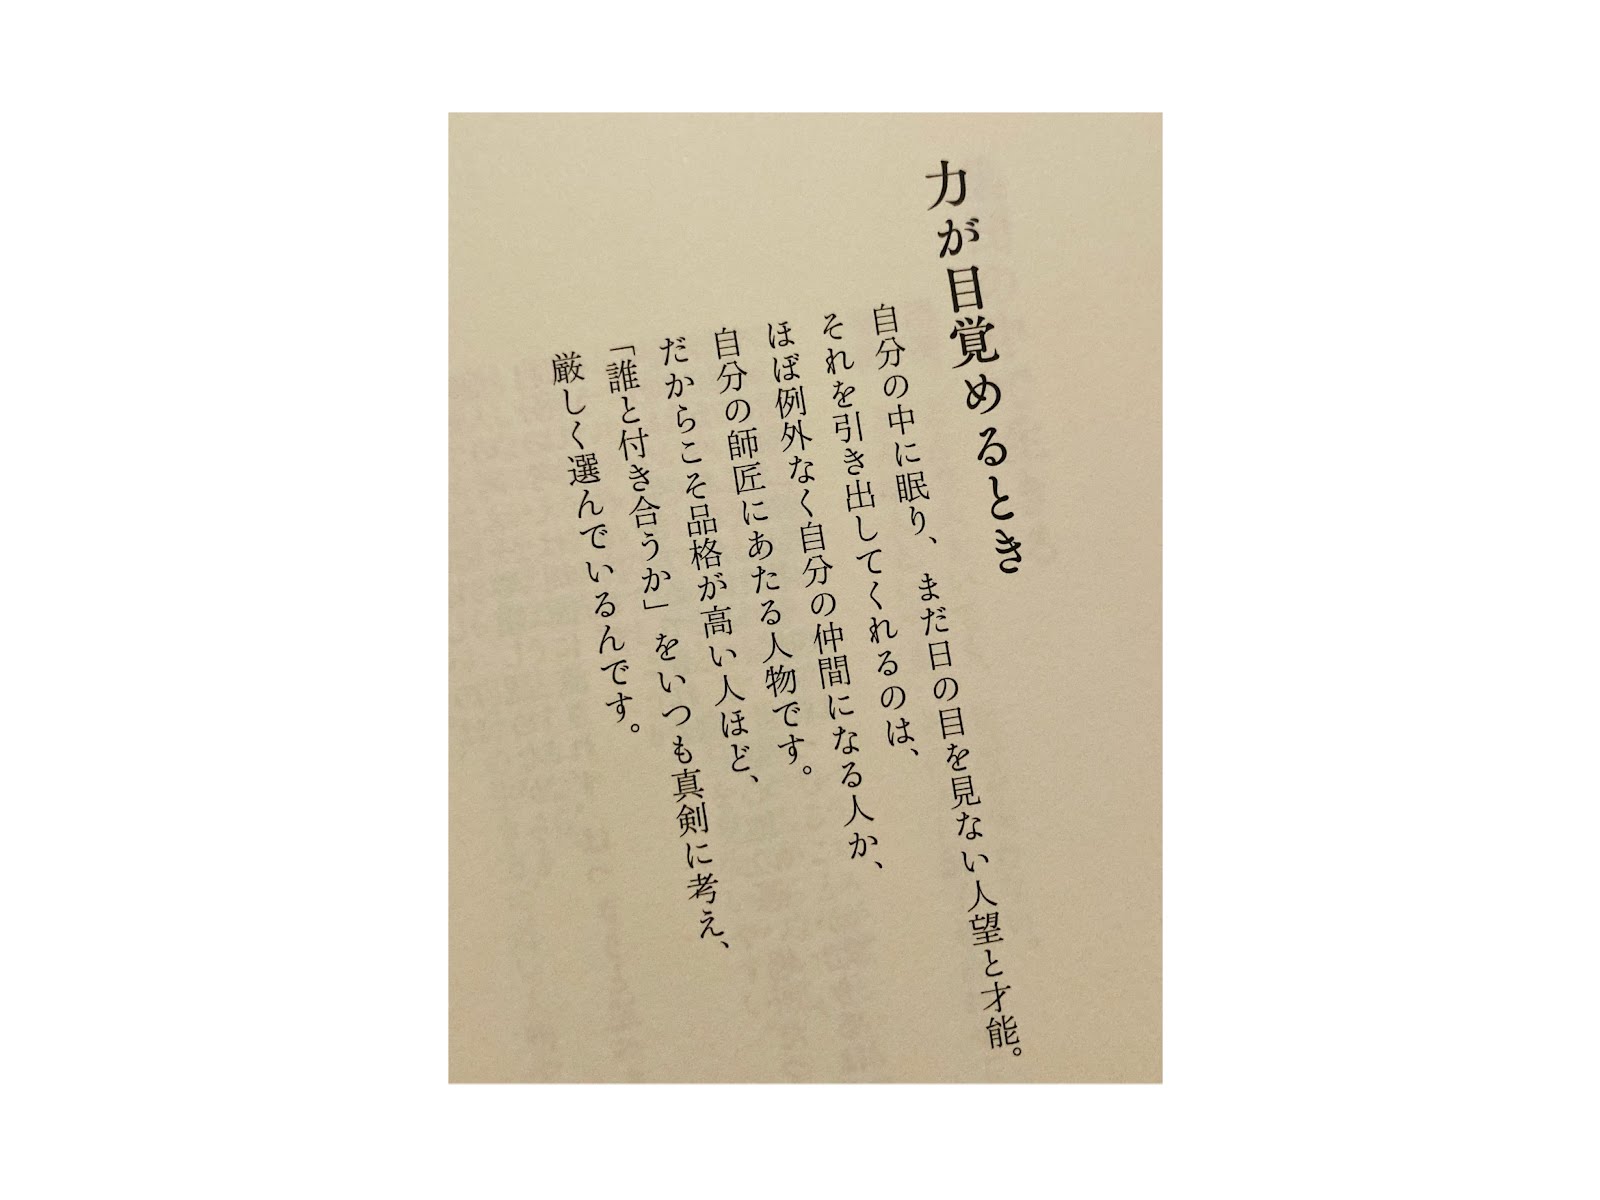 力が目覚めるとき
自分の中に眠り、まだ日の目を見ない人望と才能。
それを引き出してくれるのは、
ほぼ例外なく自分の仲間になる人か、
自分の師匠にあたる人物です。
だからこそ品格が高い人ほど、
「誰と付き合うか」をいつも真剣に考え、
厳しく選んでいるんです。